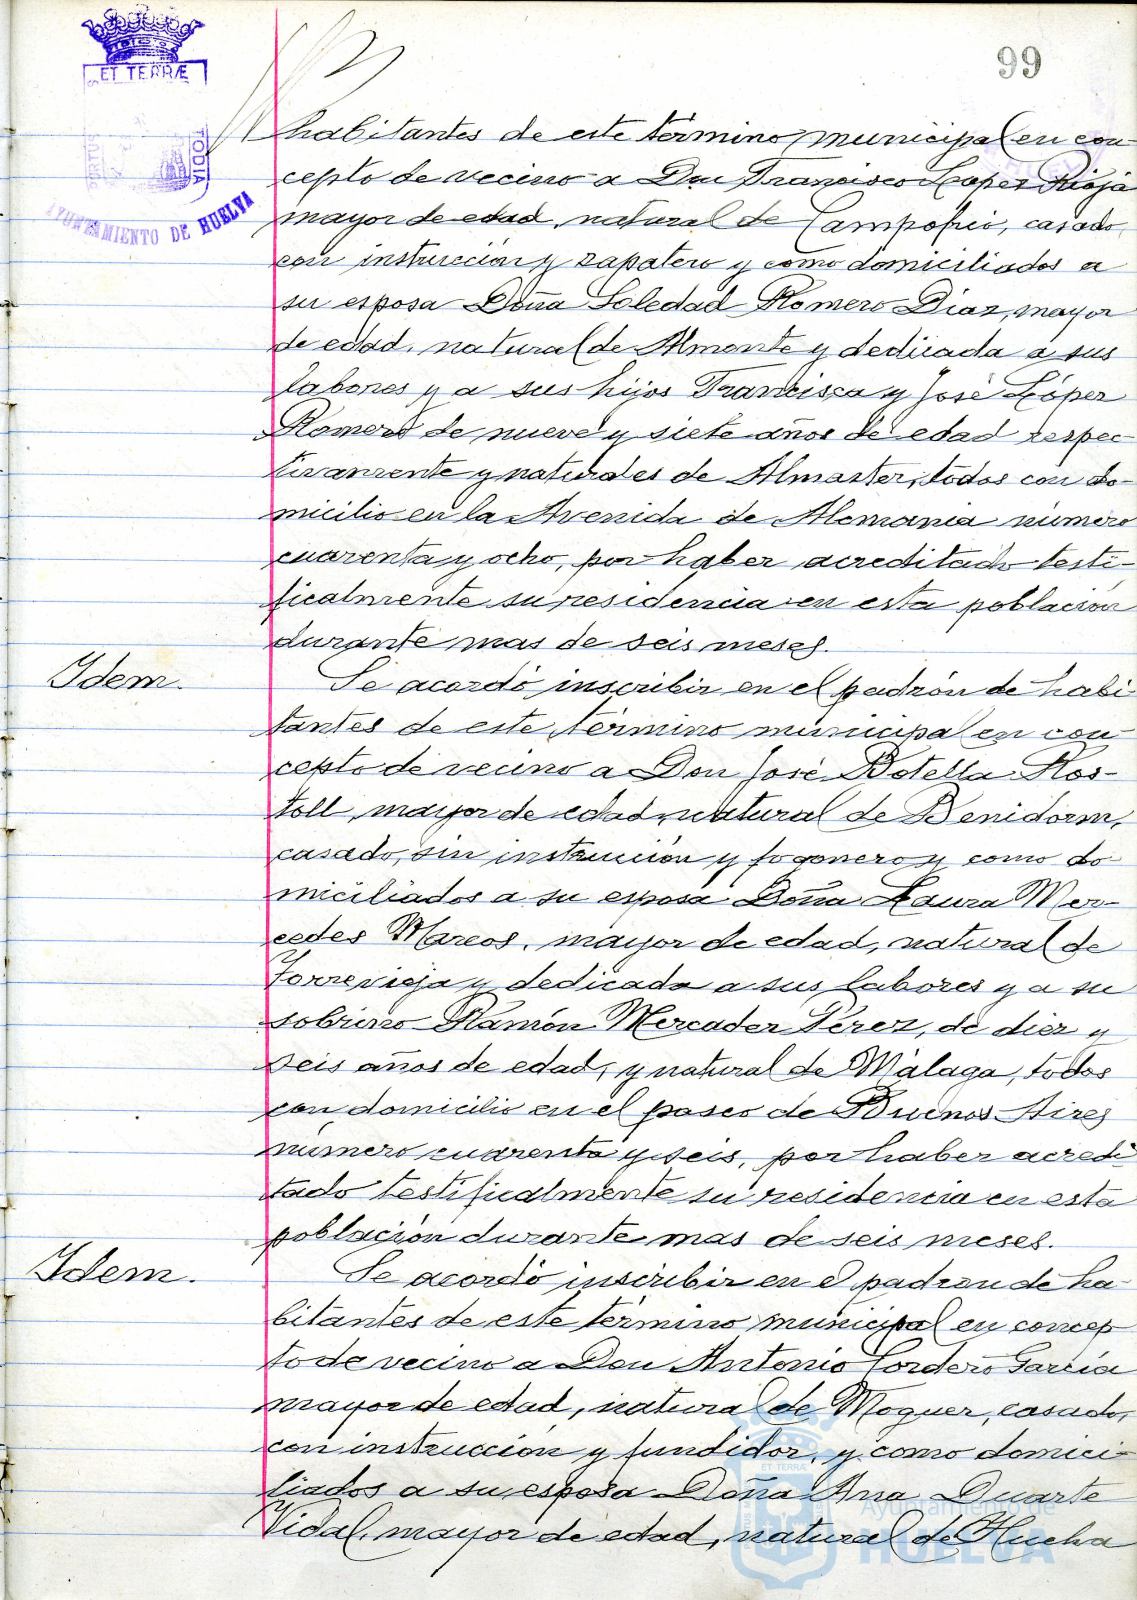 ET TERRÆ
99
PORTUS
TODIA
AYUNTAMIENTO DE HUELVA
habitantes de este término municipal en con-
cepto de vecino a Don Francisco Lopez Rioja
mayor de edad, natural de Campofrio, casado,
con instrucción y zapatero y como domiciliados a
su esposa Doña Soledad Romero Diaz, mayor
de edad, natural de Almonte y dedicada a sus
labores y a sus hijos Francisca y José López
Romero de nueve y siete años de edad respec-
tivamente y naturales de Almaster, todos con do-
micilio en la Avenida de Alemania número
cuarenta y ocho, por haber acreditado testi-
ficalmente su residencia en esta población
durante mas de seis meses.
Idem.
Se acordó inscribir en el padrón de habi-
tantes de este término municipal en con-
cepto de vecino a Don José Botella Ros-
toll, mayor de edad, natural de Benidorm,
casado, sin instrucción y fogonero y como do-
miciliados a su esposa Doña Laura Mer-
cedes Marcos, mayor de edad, natural de
Torrevieja y dedicada a sus labores y a su
sobrino Ramón Mercader Pérez, de diez y
seis años de edad, y natural de Málaga, todos
con domicilio en el paseo de Buenos Aires
número cuarenta y seis, por haber acredi-
tado testificalmente su residencia en esta
población durante mas de seis meses.
Idem.
Se acordó inscribir en el padron de ha-
bitantes de este término municipal en concep-
to de vecino a Don Antonio Cordero García
mayor de edad, natural de Moguer, casado,
con instrucción y fundidor, y como domici-
liados a su esposa Doña Ana Duarte
Vidal, mayor de edad, natural de Huelva
ET TERRÆ
Ayuntamiento de
HUELVA